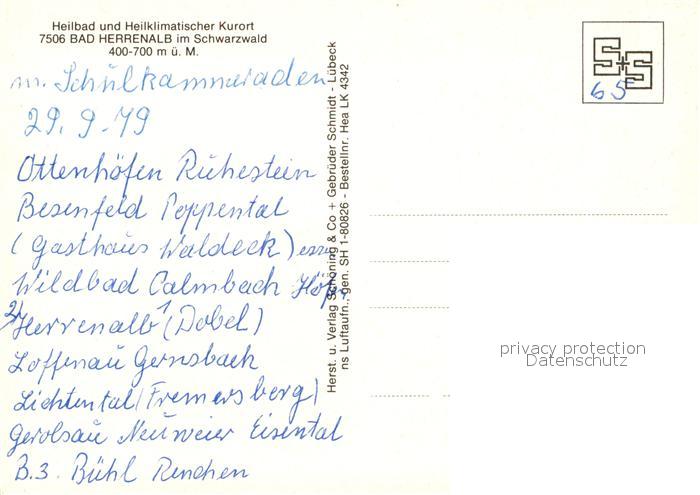 Heilbad und Heilklimatischer Kurort
7506 BAD HERRENALB im Schwarzwald
400-700 m ü. M.
m. Schulkammeraden
29. 9. 79
Ottenhöfen Ruhestein
Besenfeld Poppental
(Gasthaus Waldeck) essen
Wildbad Calmbach Höfen
2) Herrenalb 1(Dobel)
Loffenau Gernsbach
Lichtental (Fremersberg)
Gerolsau Neuweier Eisental
B.3. Bühl Renchen
Herst. u. Verlag Schöning & Co + Gebrüder Schmidt - Lübeck
ns Luftaufn., gen. SH 1-80826 - Bestellnr. Hea LK 4342
S+S
65
privacy protection
Datenschutz